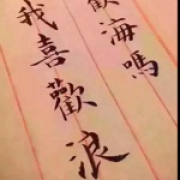 歡海嗎
我喜歡浪